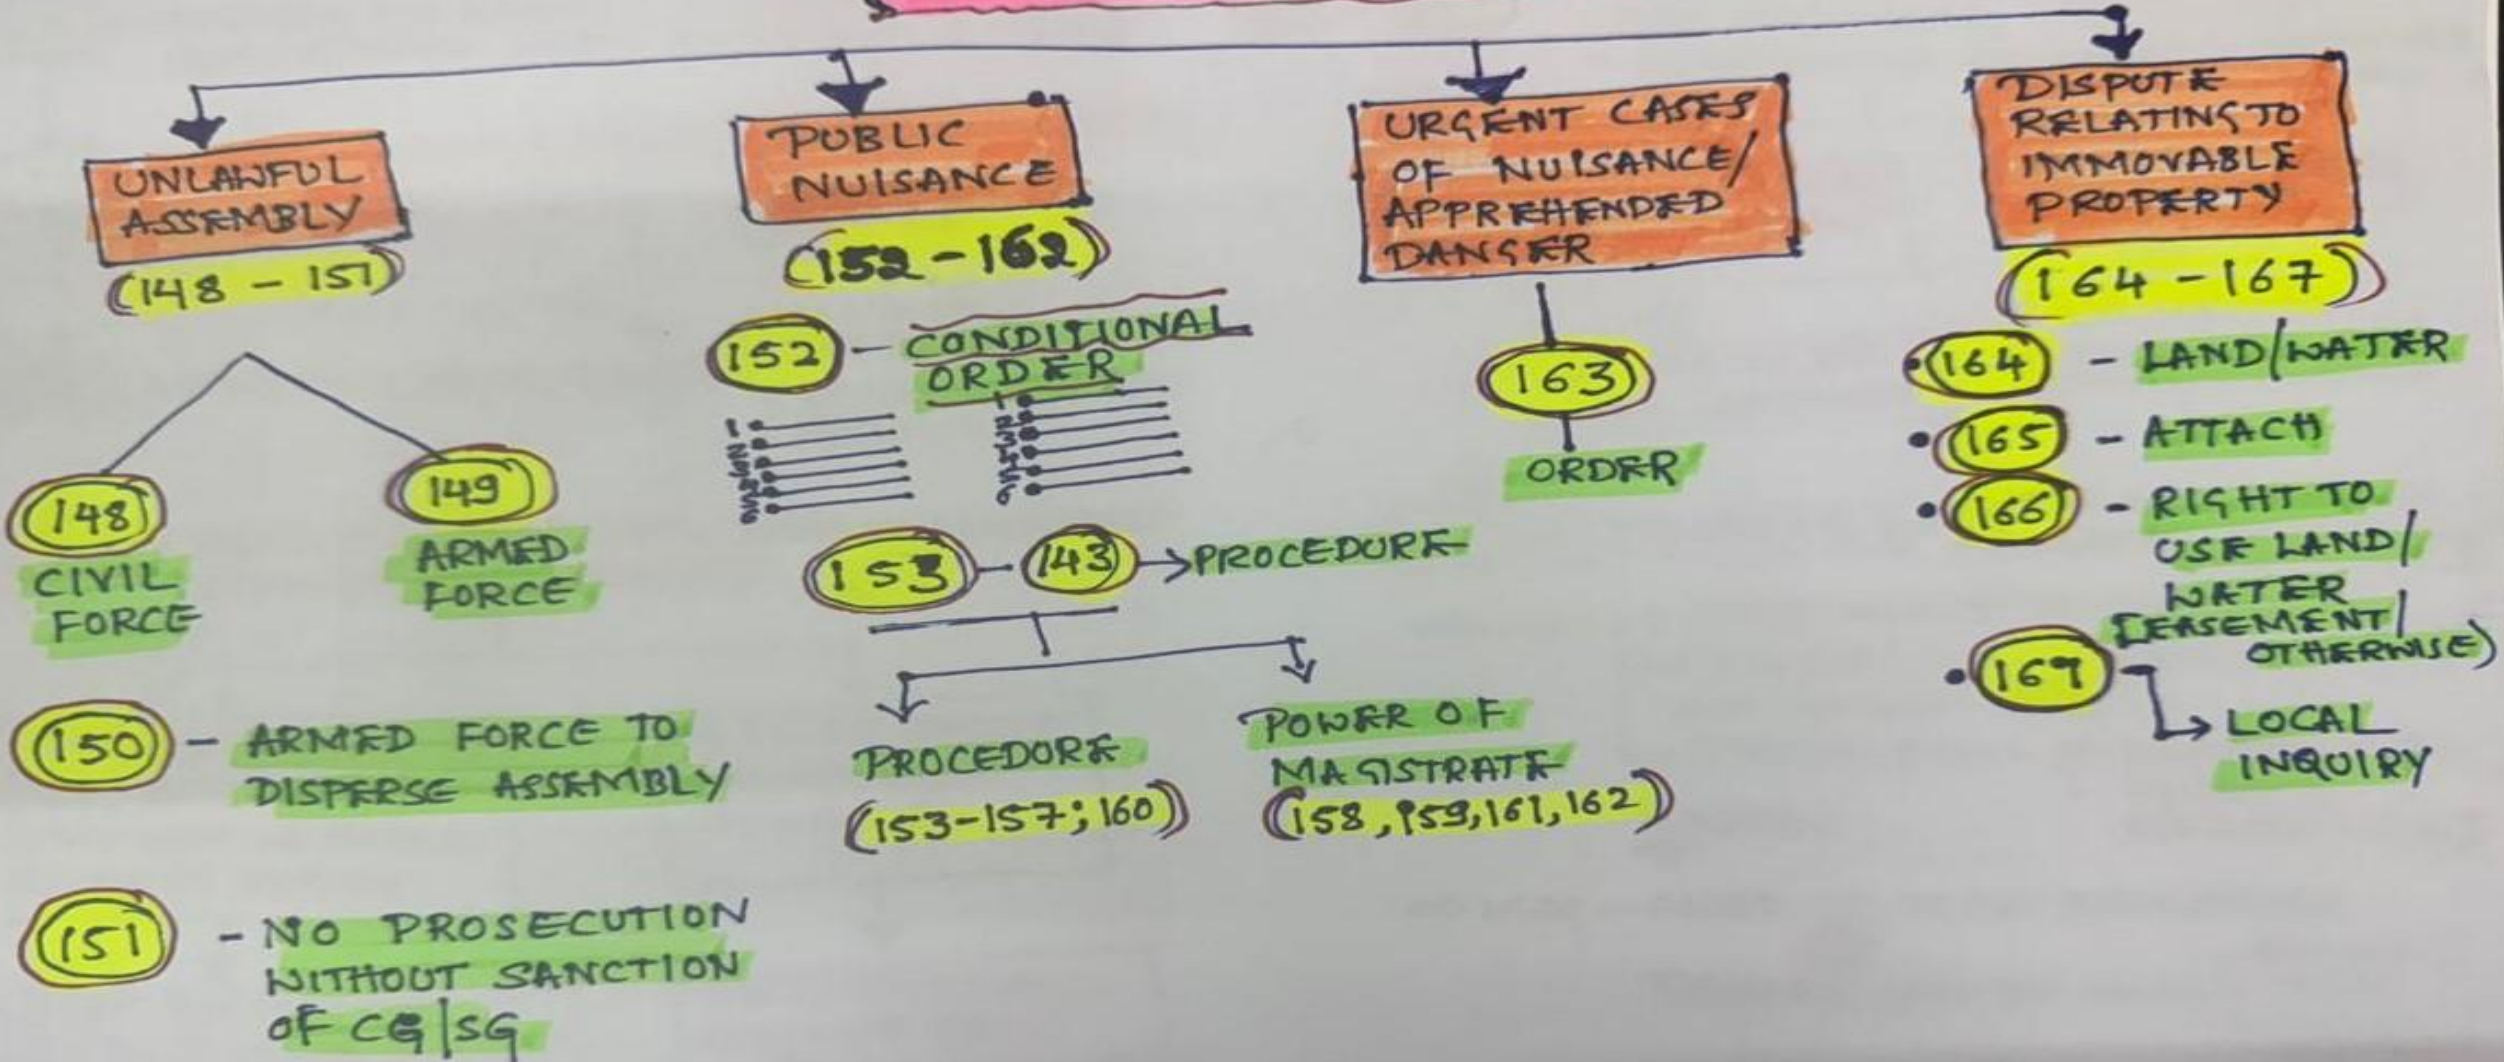 UNLAWFUL
ASSEMBLY
(148 - 151)
148
CIVIL
FORCE
149
ARMED
FORCE
150 - ARMED FORCE TO
DISPERSE ASSEMBLY
151 - NO PROSECUTION
WITHOUT SANCTION
OF CG/SG
PUBLIC
NUISANCE
(152 - 162)
152 - CONDITIONAL
ORDER
1
2
3
4
5
6
1
2
3
4
5
6
153 - 143 → PROCEDURE
PROCEDURE
(153-157; 160)
POWER OF
MAGISTRATE
(158, 159, 161, 162)
URGENT CASES
OF NUISANCE/
APPREHENDED
DANGER
163
ORDER
DISPUTE
RELATING TO
IMMOVABLE
PROPERTY
(164 - 167)
• 164 - LAND/WATER
• 165 - ATTACH
• 166 - RIGHT TO
USE LAND/
WATER
[EASEMENT/
OTHERWISE)
• 167
→ LOCAL
INQUIRY